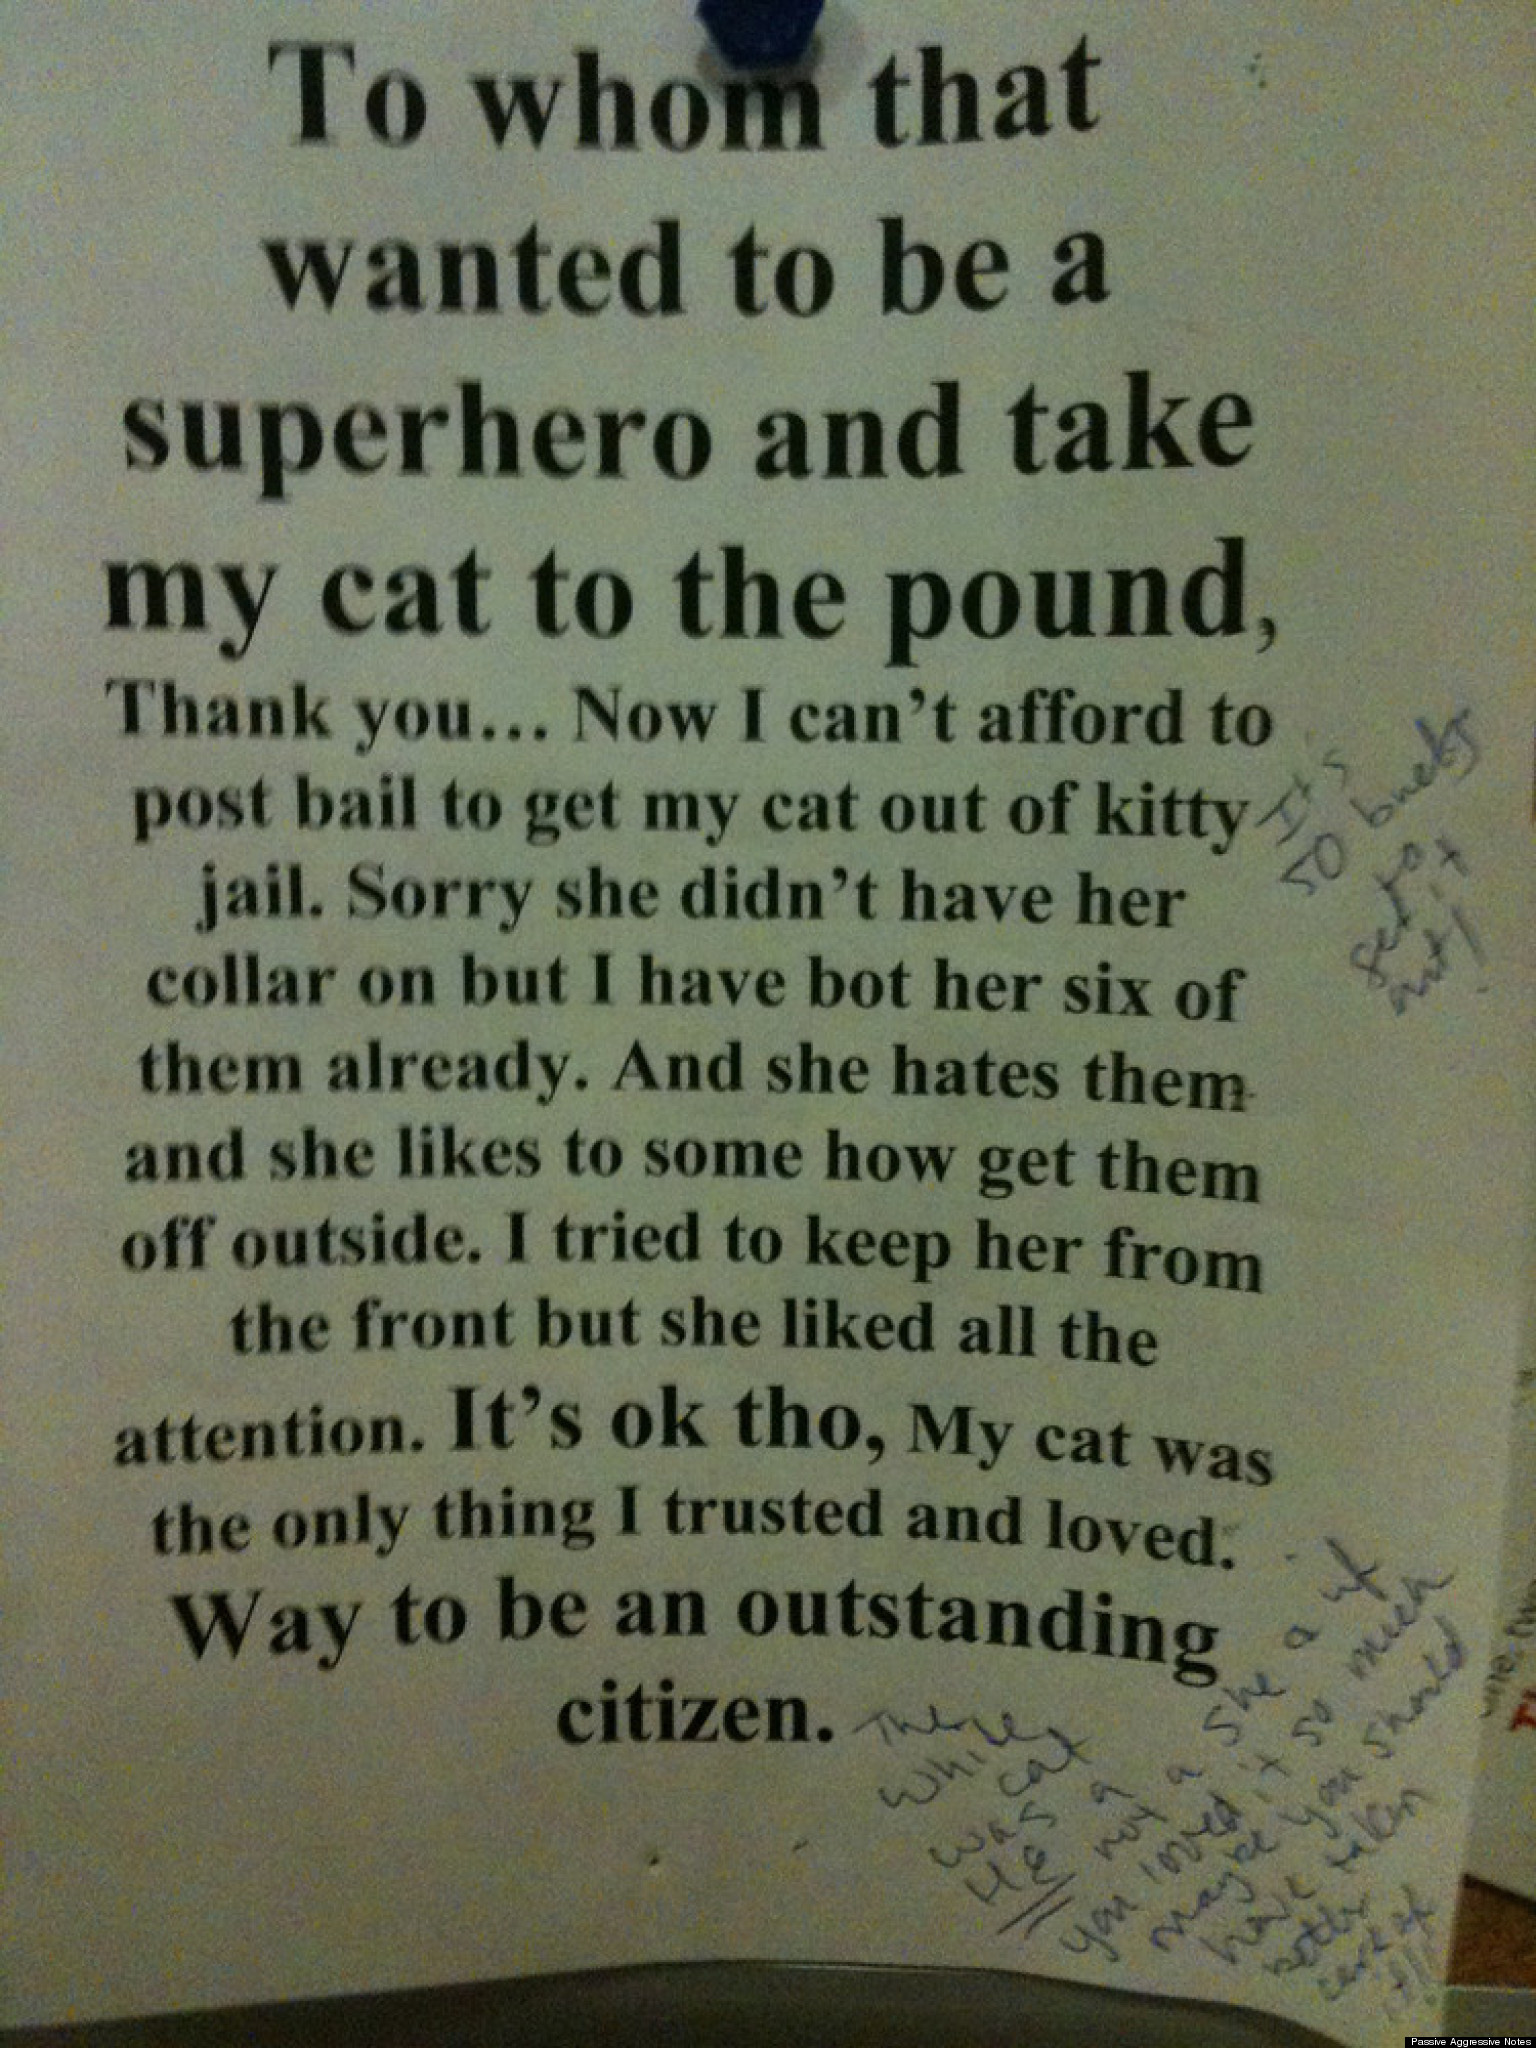 To whom that
wanted to be a
superhero and take
my cat to the pound,
Thank you... Now I can't afford to
post bail to get my cat out of kitty
jail. Sorry she didn't have her
collar on but I have bot her six of
them already. And she hates them
and she likes to some how get them
off outside. I tried to keep her from
the front but she liked all the
attention. It's ok tho, My cat was
the only thing I trusted and loved.
Way to be an outstanding
citizen.
It's
50 bucks
to
get it
out!
The
white
cat
was a
HE not a she
you loved it so much
maybe you should
have taken
better
care of
it!!
Passive Aggressive Notes